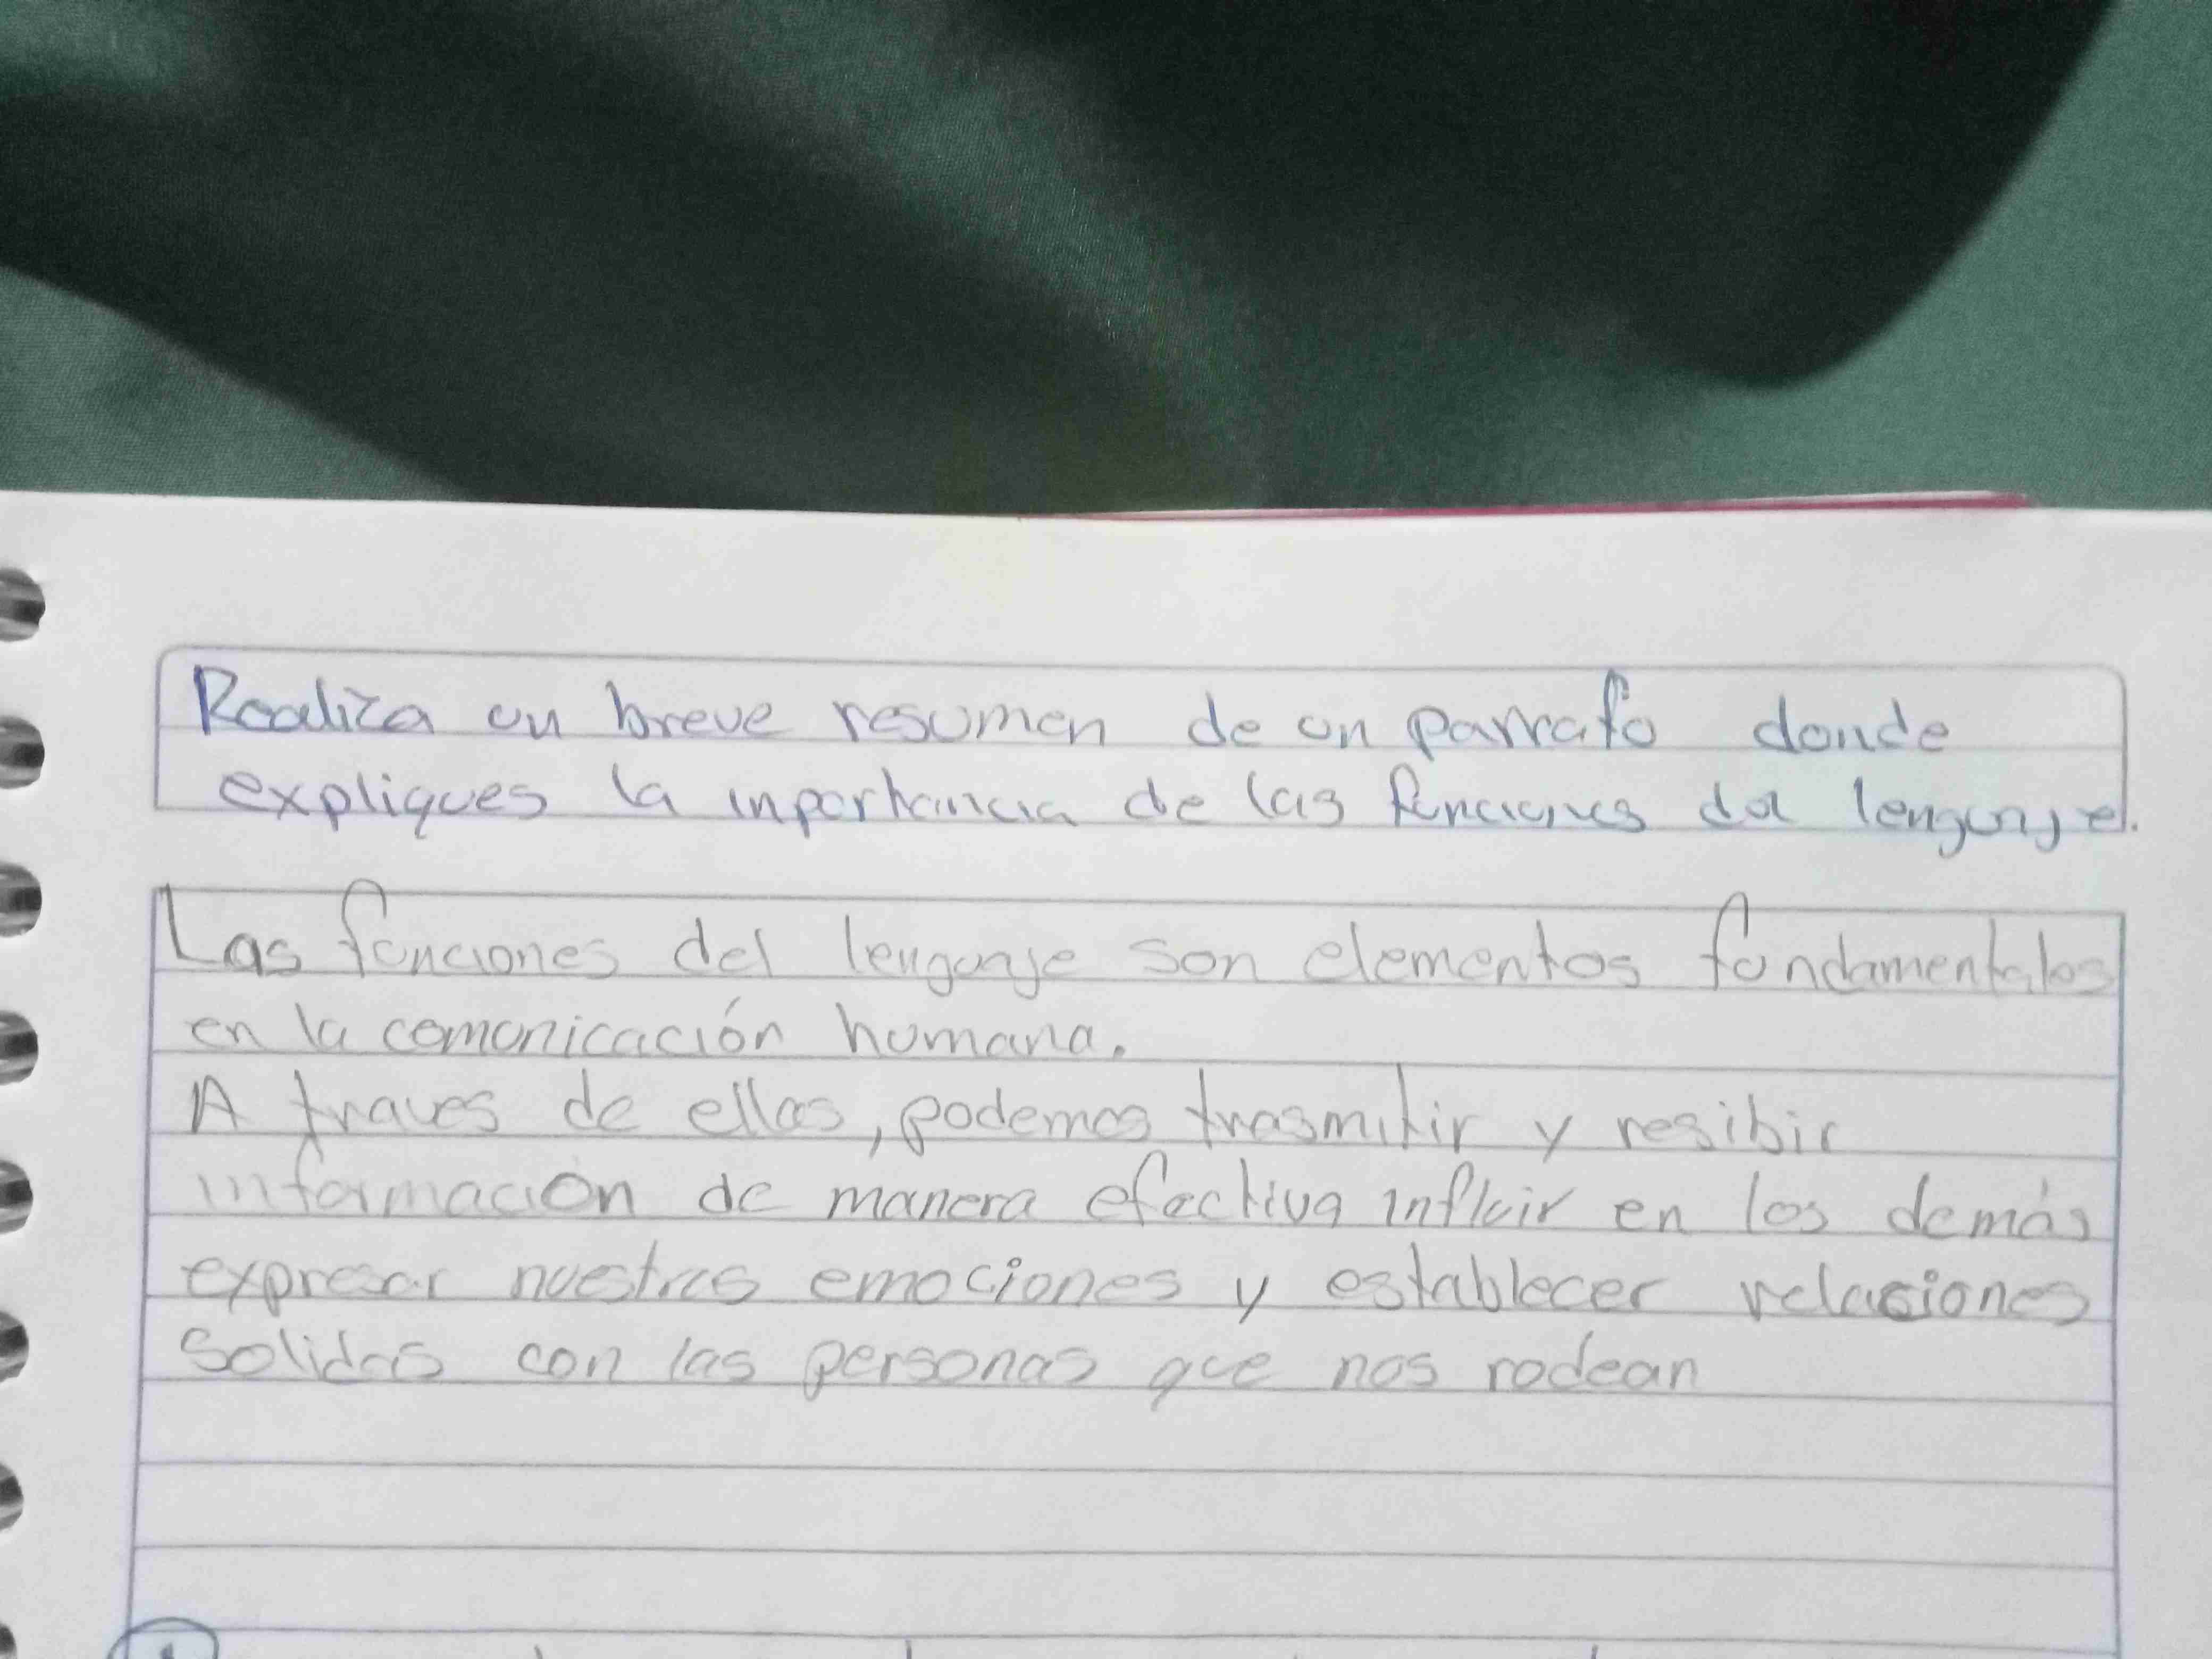 Realiza un breve resumen de un parrafo donde
expliques la inportancia de las funciones del lenguaje.
Las funciones del lenguaje son elementos fundamentales
en la comunicación humana.
A traves de ellas, podemos trasmitir y resibir
información de manera efectiva influir en los demás
expresar nuestras emociones y establecer relaciones
Solidas con las personas que nos rodean